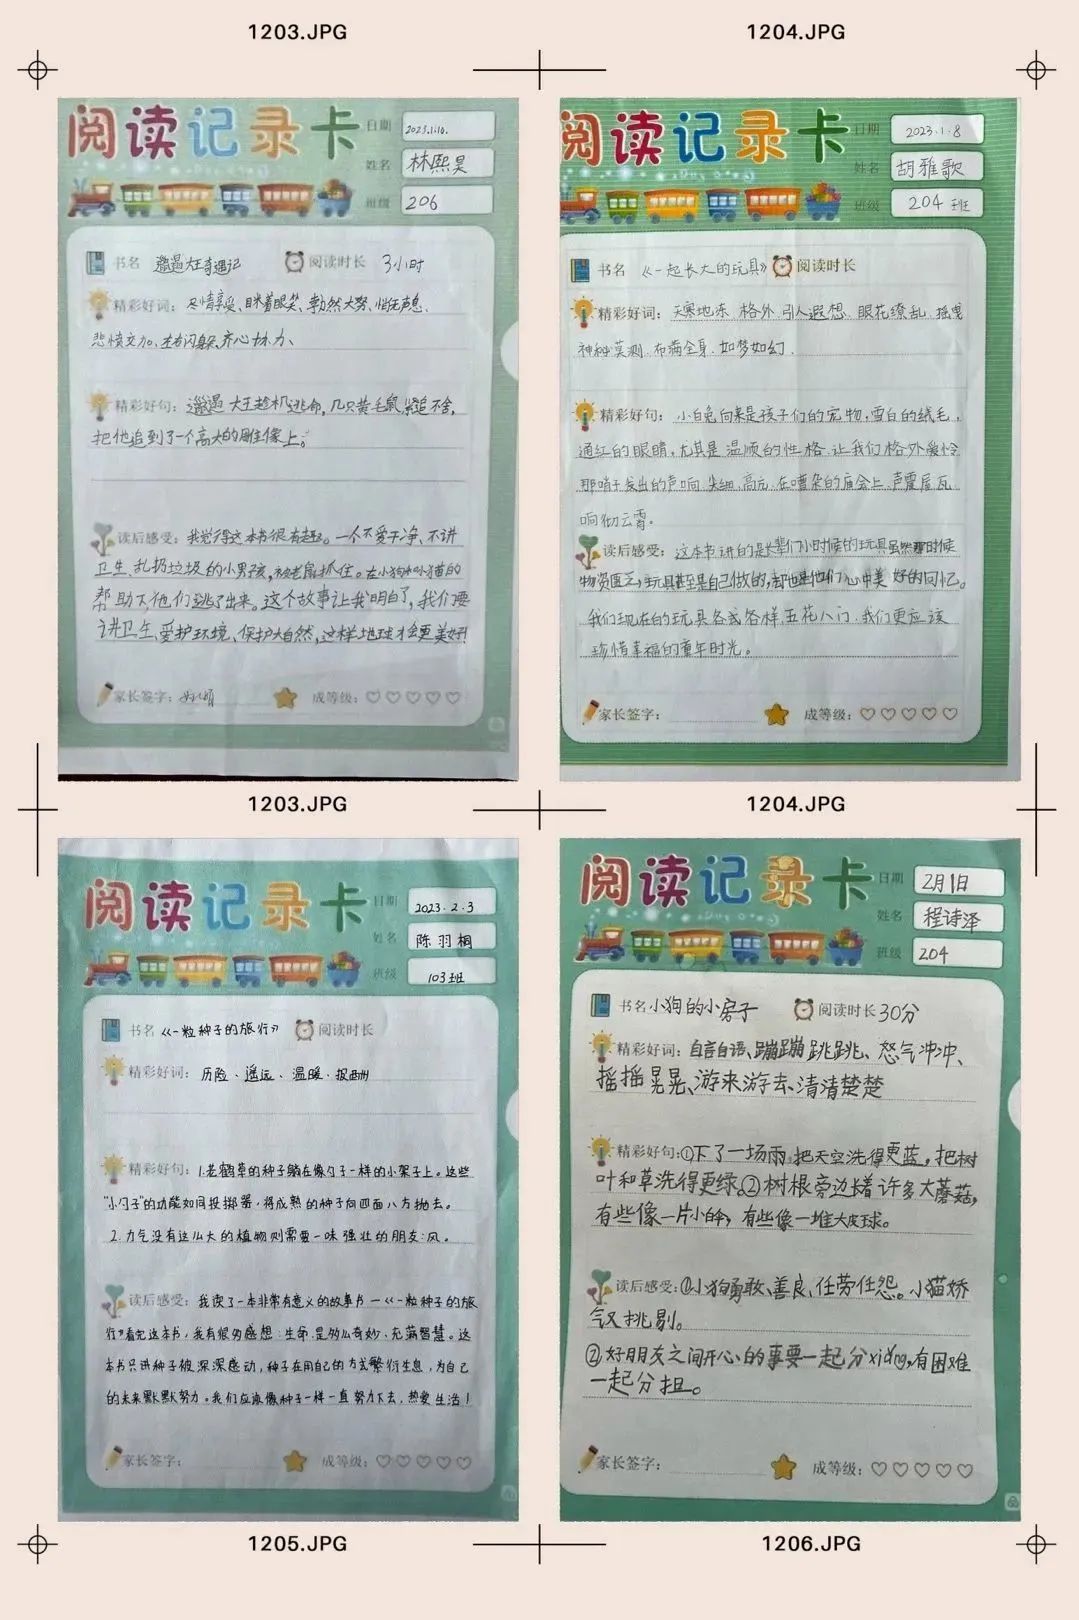 1203.JPG
1204.JPG
阅读记录卡
日期 2023.1.10.
姓名 林熙昊
班级 206
书名 邋遢大王奇遇记 阅读时长 3小时
精彩好词: 尽情享受、眯着眼笑、勃然大怒、悄无声息、
悲愤交加、左右闪躲、齐心协力、
精彩好句: 邋遢大王趁机逃命,几只黄毛鼠紧追不舍,
把他追到了一个高大的雕像上。
读后感受: 我觉得这本书很有趣。一个不爱干净、不讲
卫生、乱扔垃圾的小男孩,被老鼠抓住。在小狗和小猫的
帮助下,他们逃了出来。这个故事让我明白了,我们要
讲卫生、爱护环境、保护大自然,这样地球才会更美好!
家长签字: 成等级:
阅读记录卡
日期 2023.1.8
姓名 胡雅歌
班级 204班
书名 《一起长大的玩具》 阅读时长
精彩好词: 天寒地冻 格外 引人遐想 眼花缭乱 摇曳
神秘莫测 布满全身 如梦如幻
精彩好句: 小白兔向来是孩子们的宠物,雪白的绒毛,
通红的眼睛,尤其是温顺的性格 让我们格外爱怜
那哨子发出的声响 尖细 高亢 在嘈杂的庙会上 声震屋瓦
响彻云霄。
读后感受: 这本书讲的是长辈们小时候的玩具虽然那时候
物资匮乏,玩具甚至是自己做的,却也是他们心中美好的回忆。
我们现在的玩具各式各样 五花八门 我们更应该
珍惜幸福的童年时光。
家长签字: 成等级:
1203.JPG
1204.JPG
阅读记录卡
日期 2023.2.3
姓名 陈羽桐
班级 103班
书名 《一粒种子的旅行》 阅读时长
精彩好词: 历险、遥远、温暖、报酬
精彩好句: 1.老鹳草的种子躺在像勺子一样的小架子上。这些
"小勺子"的功能如同投掷器,将成熟的种子向四面八方抛去。
2.力气没有这么大的植物则需要一味强壮的朋友:风。
读后感受: 我读了一本非常有意义的故事书—《一粒种子的旅
行》看完这本书,我有很多感想:生命是多么奇妙、充满智慧。这
本书只讲种子被深深感动,种子在用自己的方式繁衍生息,为自己
的未来默默努力。我们应该像种子一样一直努力下去,热爱生活!
家长签字: 成等级:
阅读记录卡
日期 2月1日
姓名 程诗泽
班级 204
书名 小狗的小房子 阅读时长 30分
精彩好词: 自言自语、蹦蹦跳跳、怒气冲冲、
摇摇晃晃、游来游去、清清楚楚
精彩好句: ①下了一场雨,把天空洗得更蓝,把树
叶和草洗得更绿。②树根旁边长着许多大蘑菇,
有些像一片小伞,有些像一堆大皮球。
读后感受: ①小狗勇敢、善良、任劳任怨。小猫娇
气又挑剔。
②好朋友之间开心的事要一起分xiǎng,有困难
一起分担。
家长签字: 成等级:
1205.JPG
1206.JPG